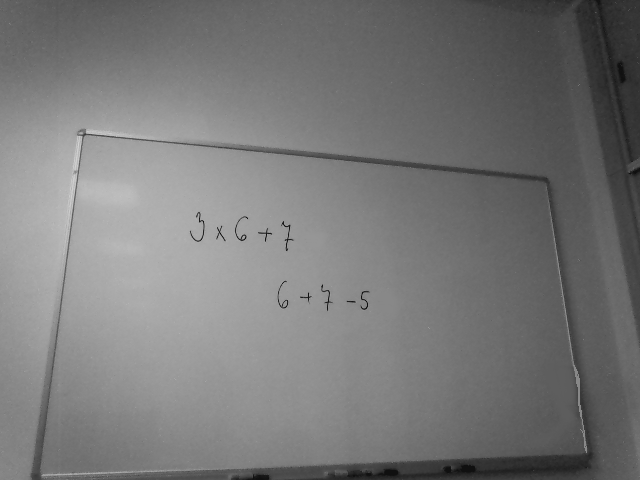 3 × 6 + 7
6 + 7 - 5